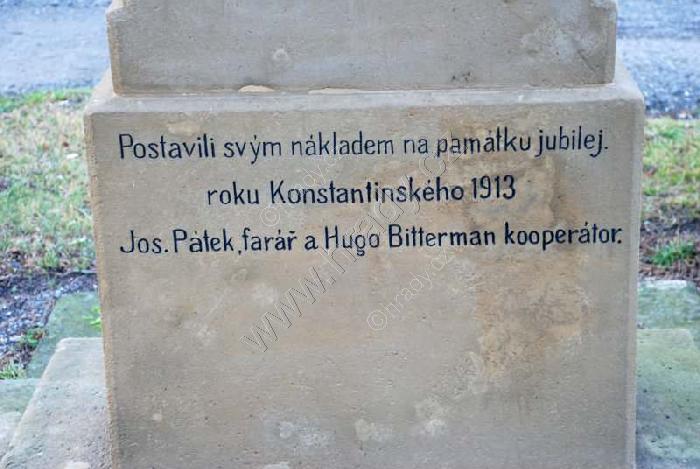 Postavili svým nákladem na památku jubilej.
roku Konstantinského 1913
Jos. Pátek, farář a Hugo Bitterman kooperátor.
www.hrady.cz
©hrady.cz